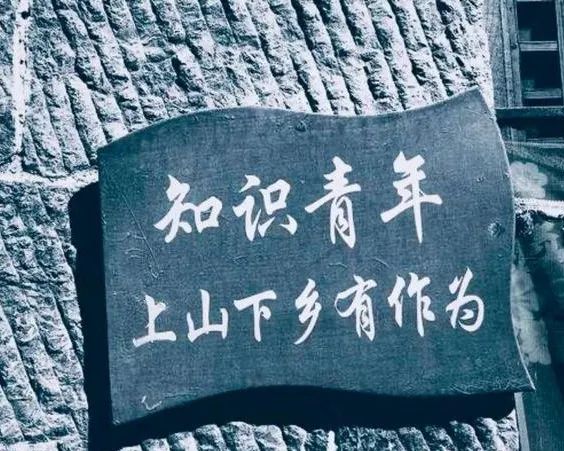 知识青年
上山下乡有作为